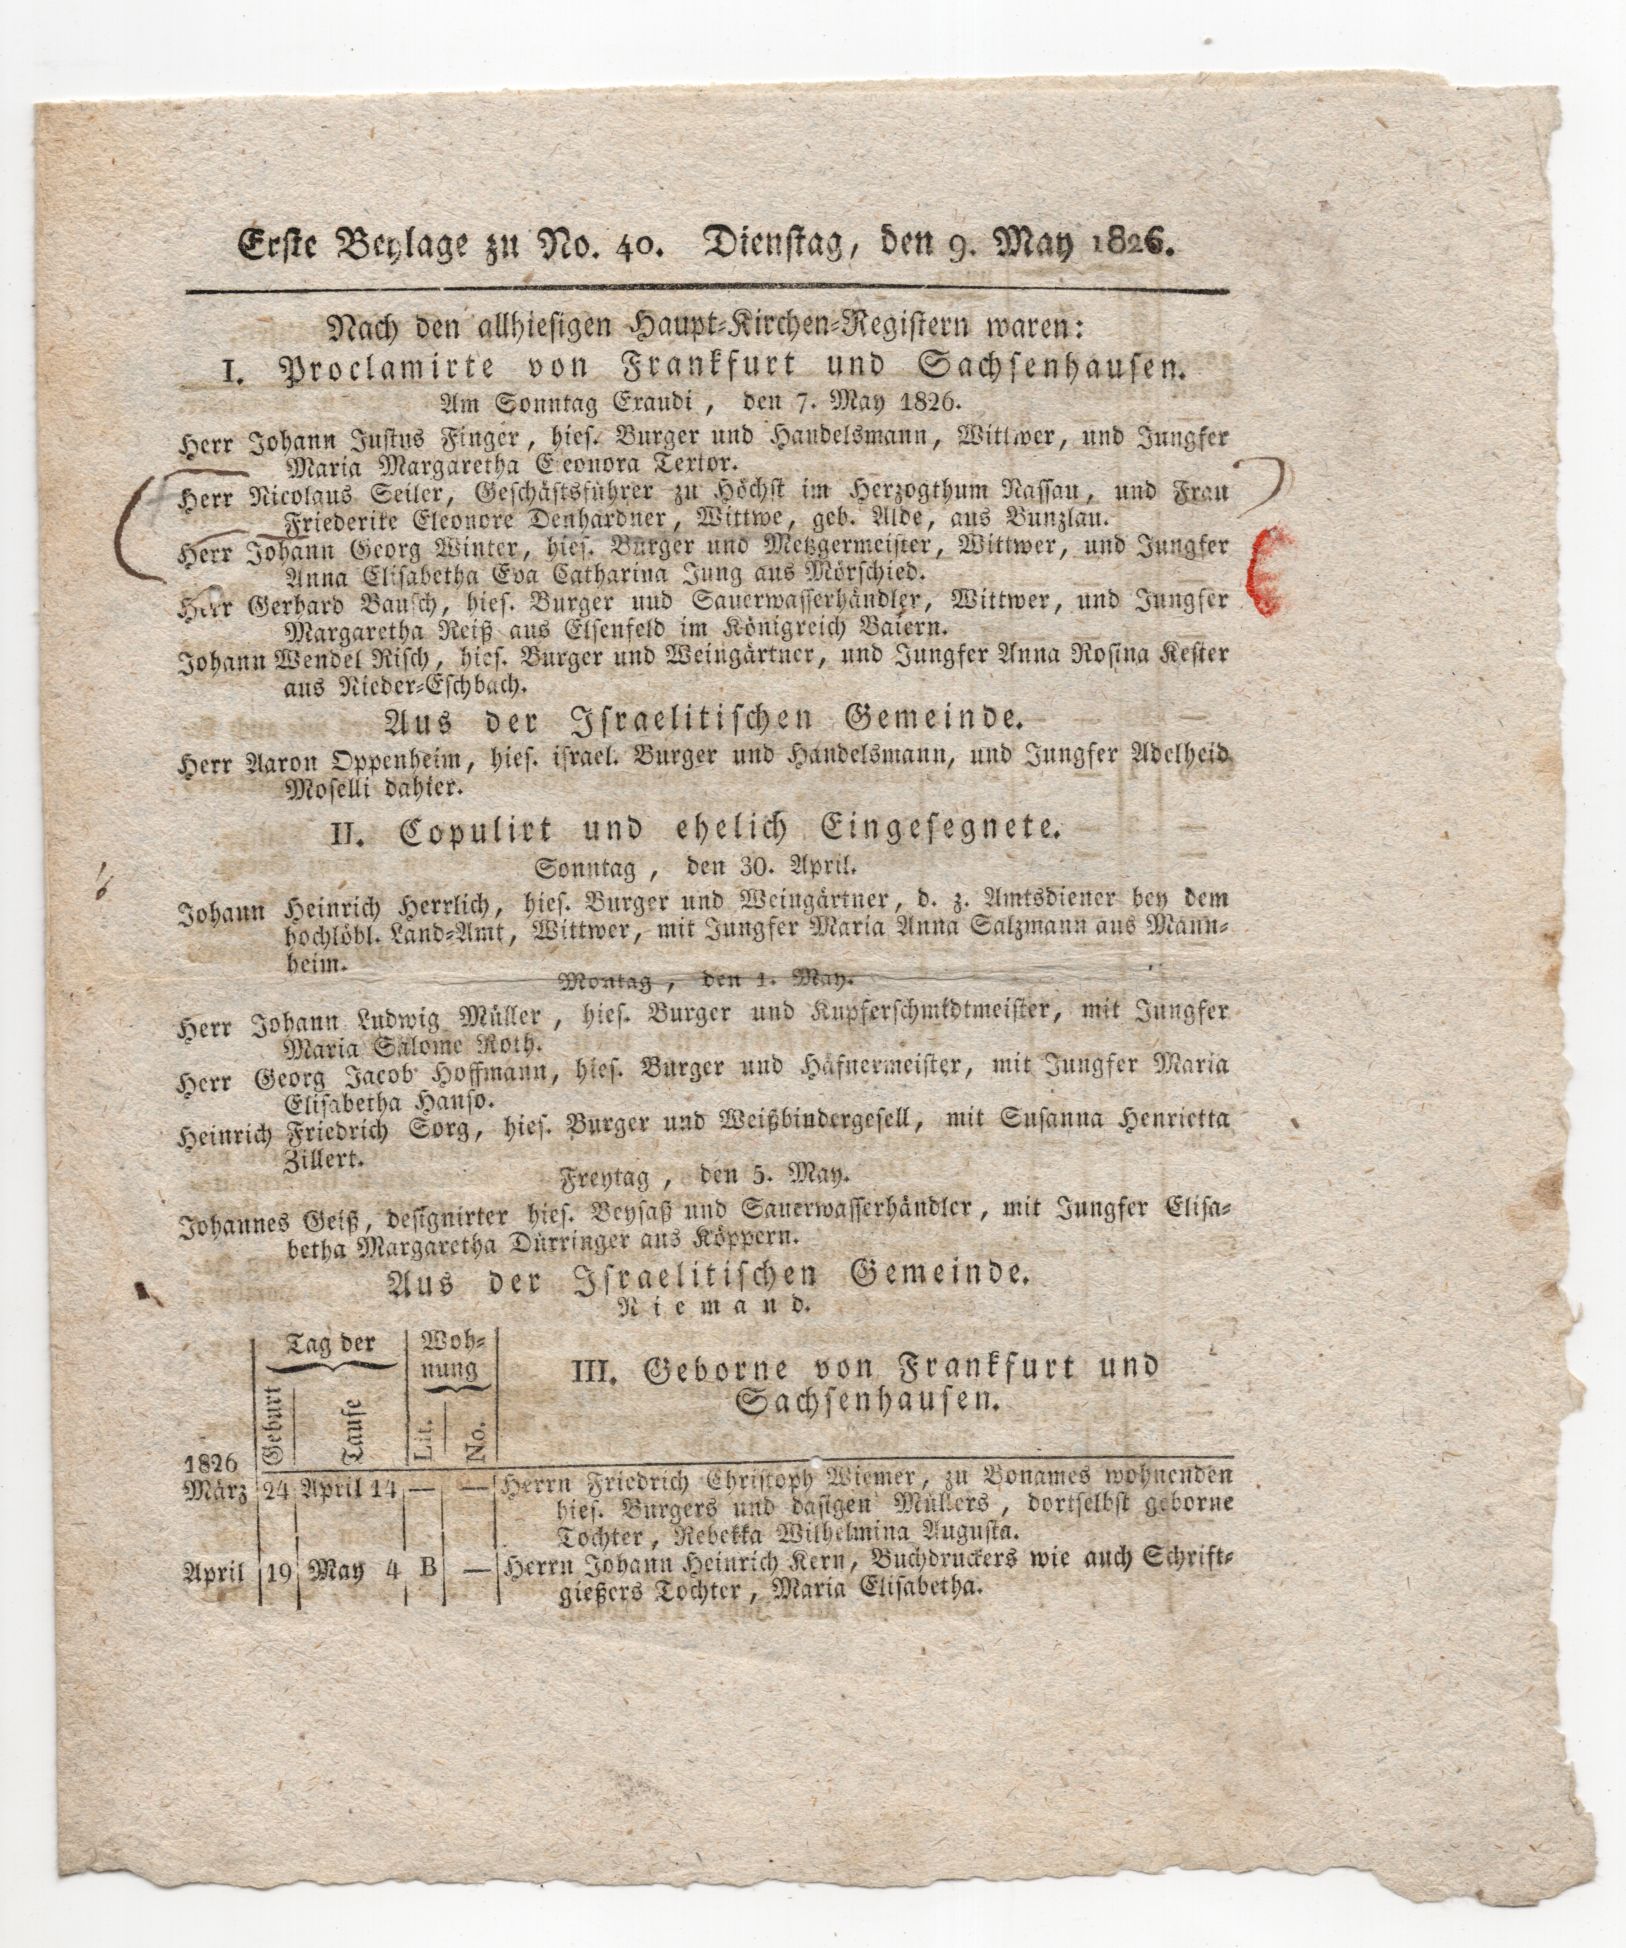 Erste Beylage zu No. 40. Dienstag, den 9. May 1826.
Nach den allhiesigen Haupt-Kirchen-Registern waren:
I. Proclamirte von Frankfurt und Sachsenhausen.
Am Sonntag Exaudi, den 7. May 1826.
Herr Johann Justus Finger, hies. Burger und Handelsmann, Wittwer, und Jungfer
Maria Margaretha Eleonora Textor.
Herr Nicolaus Seiler, Geschäftsführer zu Höchst im Herzogthum Nassau, und Frau
Friederike Eleonore Denhardner, Wittwe, geb. Alde, aus Bunzlau.
Herr Johann Georg Winter, hies. Burger und Metzgermeister, Wittwer, und Jungfer
Anna Elisabetha Eva Catharina Jung aus Mörschied.
Herr Gerhard Bausch, hies. Burger und Sauerwasserhändler, Wittwer, und Jungfer
Margaretha Reiß aus Elsenfeld im Königreich Baiern.
Johann Wendel Risch, hies. Burger und Weingärtner, und Jungfer Anna Rosina Kester
aus Nieder-Eschbach.
Aus der Israelitischen Gemeinde.
Herr Aaron Oppenheim, hies. israel. Burger und Handelsmann, und Jungfer Adelheid
Moselli dahier.
II. Copulirt und ehelich Eingesegnete.
Sonntag, den 30. April.
Johann Heinrich Herrlich, hies. Burger und Weingärtner, d. z. Amtsdiener bey dem
hochlöbl. Land-Amt, Wittwer, mit Jungfer Maria Anna Salzmann aus Mann-
heim.
Montag, den 1. May.
Herr Johann Ludwig Müller, hies. Burger und Kupferschmidtmeister, mit Jungfer
Maria Salome Roth.
Herr Georg Jacob Hoffmann, hies. Burger und Häfnermeister, mit Jungfer Maria
Elisabetha Hanso.
Heinrich Friedrich Sorg, hies. Burger und Weißbindergesell, mit Susanna Henrietta
Zillert.
Freytag, den 5. May.
Johannes Geiß, designirter hies. Beysaß und Sauerwasserhändler, mit Jungfer Elisa-
betha Margaretha Dürringer aus Köppern.
Aus der Israelitischen Gemeinde.
Niemand.
Tag der Woh-
nung
III. Geborne von Frankfurt und
Sachsenhausen.
1826 Geburt Taufe Lit. No.
März 24 April 14 — — Herrn Friedrich Christoph Wiemer, zu Bonames wohnenden
hies. Burgers und dasigen Müllers, dortselbst geborne
Tochter, Rebekka Wilhelmina Augusta.
April 19 May 4 B — Herrn Johann Heinrich Kern, Buchdruckers wie auch Schrift-
gießers Tochter, Maria Elisabetha.